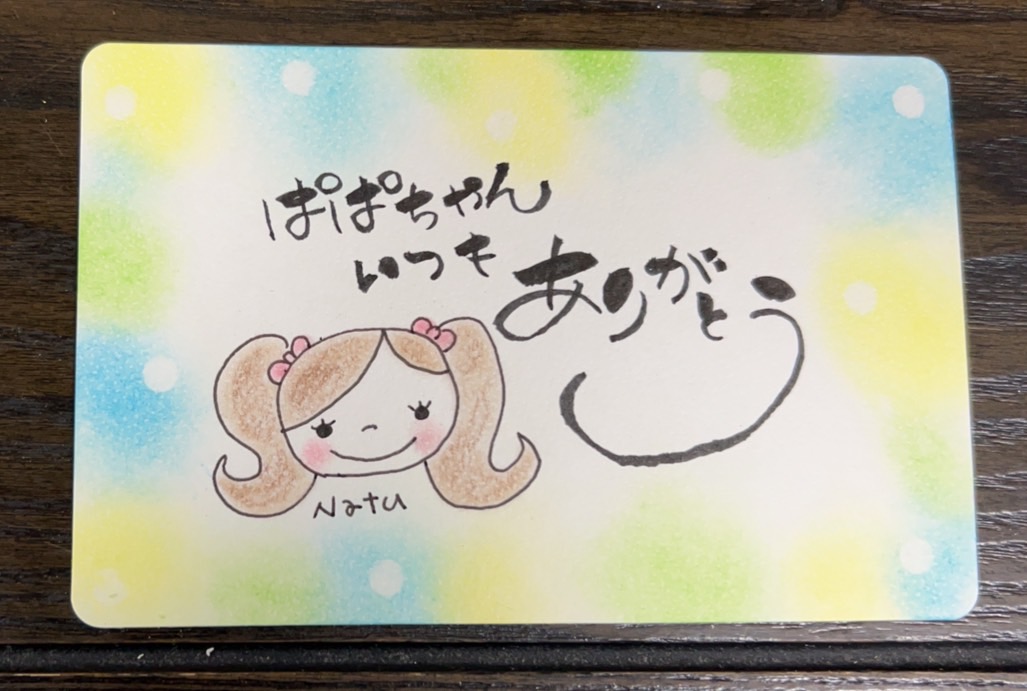 ぱぱちゃん
いつも
ありがとう
Natu